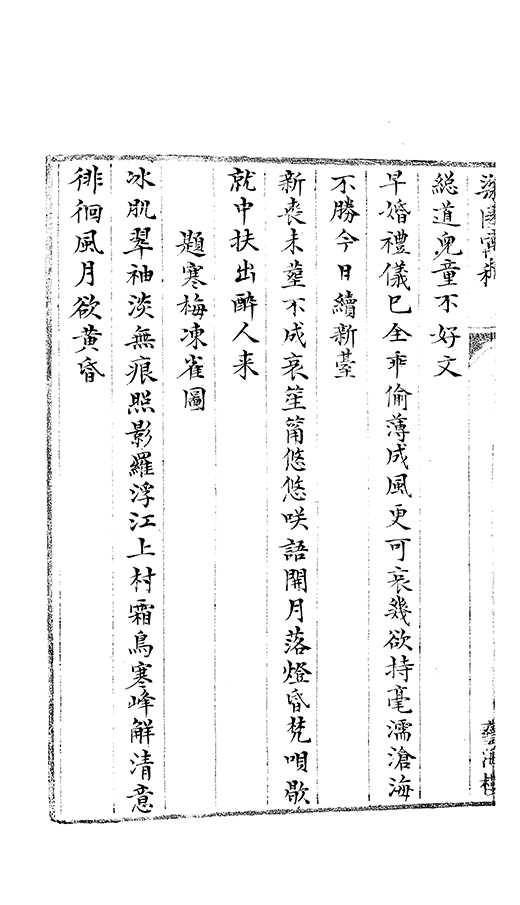 総道兒童不好文
早婚禮儀已全乖偷薄成風更可哀幾欲持毫濡滄海
不勝今日續新臺
新喪未塟不成哀笙筩悠悠咲語開月落燈昏梵唄歇
就中扶出醉人来
題寒梅凍雀圖
冰肌翠袖淡無痕照影羅浮江上村霜鳥寒峰解清意
徘徊風月欲黄昏
藝海樓